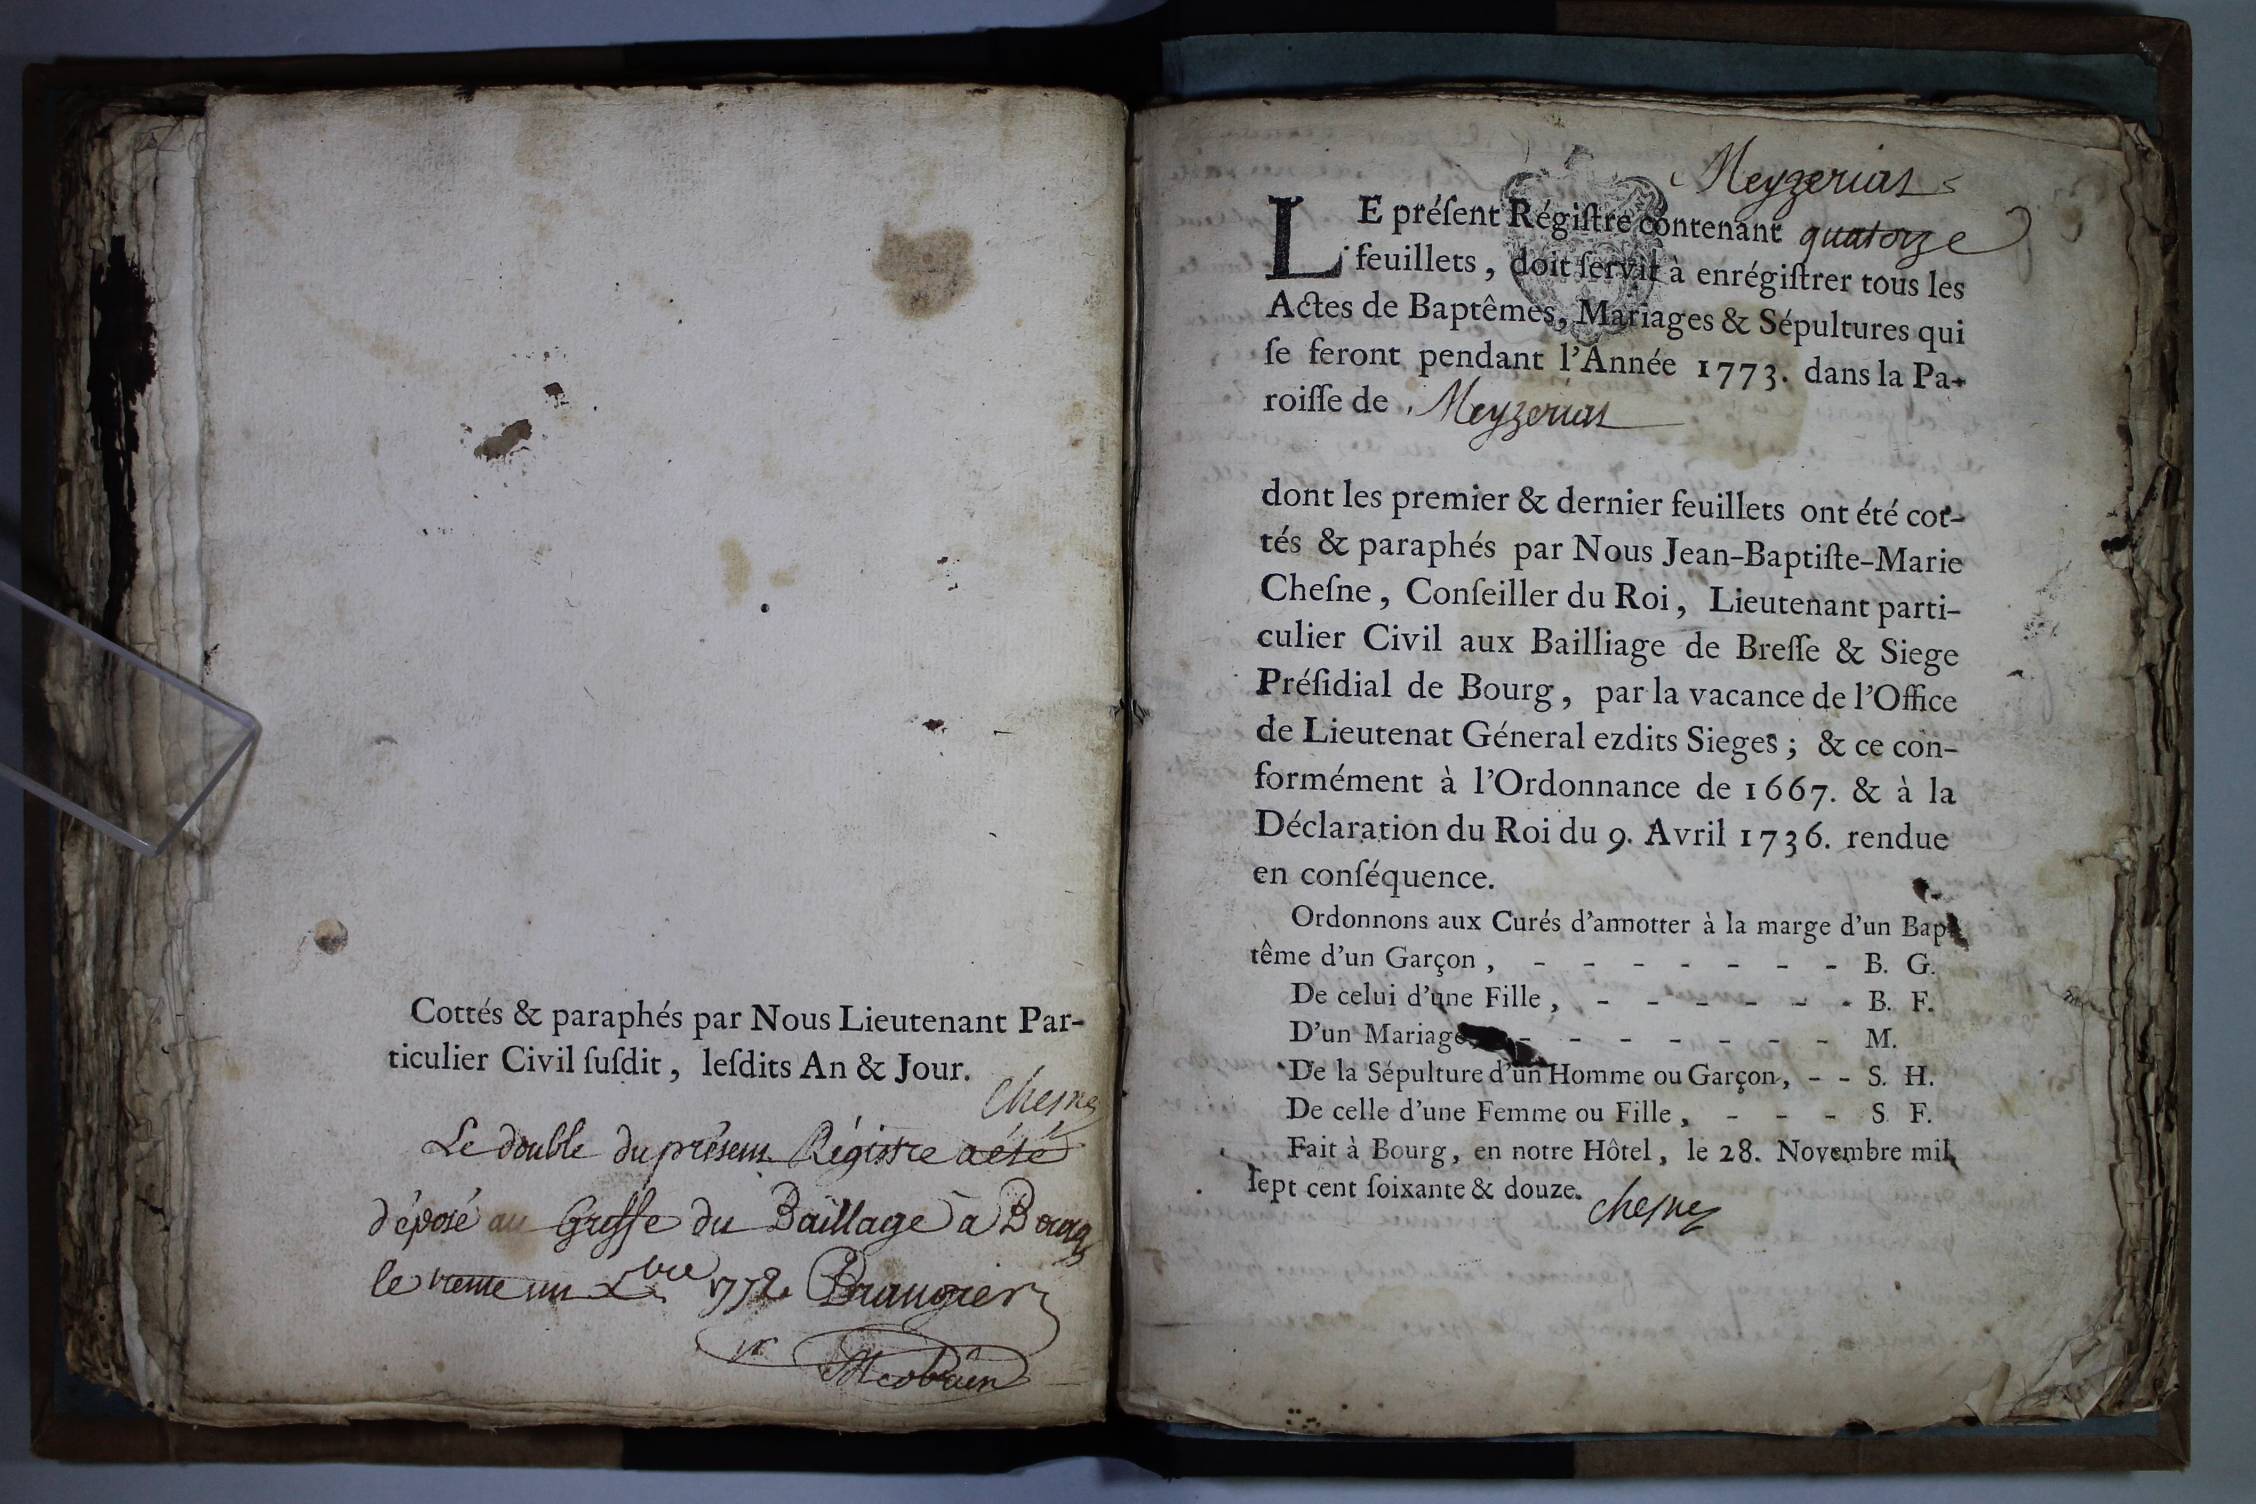 Cottés & paraphés par Nous Lieutenant Par-
ticulier Civil ſuſdit, leſdits An & Jour.
Chesne
Le double du présent Régistre a été
déposé au Greffe du Baillage a Bourg
le trente un 1772 Brangier
Meyzeriat
LE préſent Régiſtre contenant quatorze
feuillets, doit ſervir à enrégiſtrer tous les
Actes de Baptêmes, Mariages & Sépultures qui
ſe feront pendant l'Année 1773. dans la Pa-
roiſſe de Meyzeriat
dont les premier & dernier feuillets ont été cot-
tés & paraphés par Nous Jean-Baptiſte-Marie
Cheſne, Conſeiller du Roi, Lieutenant parti-
culier Civil aux Bailliage de Breſſe & Siege
Préſidial de Bourg, par la vacance de l'Office
de Lieutenat Géneral ezdits Sieges; & ce con-
formément à l'Ordonnance de 1667. & à la
Déclaration du Roi du 9. Avril 1736. rendue
en conſéquence.
Ordonnons aux Curés d'annotter à la marge d'un Bap-
tême d'un Garçon, - - - - - - - B. G.
De celui d'une Fille, - - - - - - B. F.
D'un Mariage, - - - - - - - M.
De la Sépulture d'un Homme ou Garçon, - - S. H.
De celle d'une Femme ou Fille, - - - S. F.
Fait à Bourg, en notre Hôtel, le 28. Novembre mil
ſept cent ſoixante & douze. Chesne